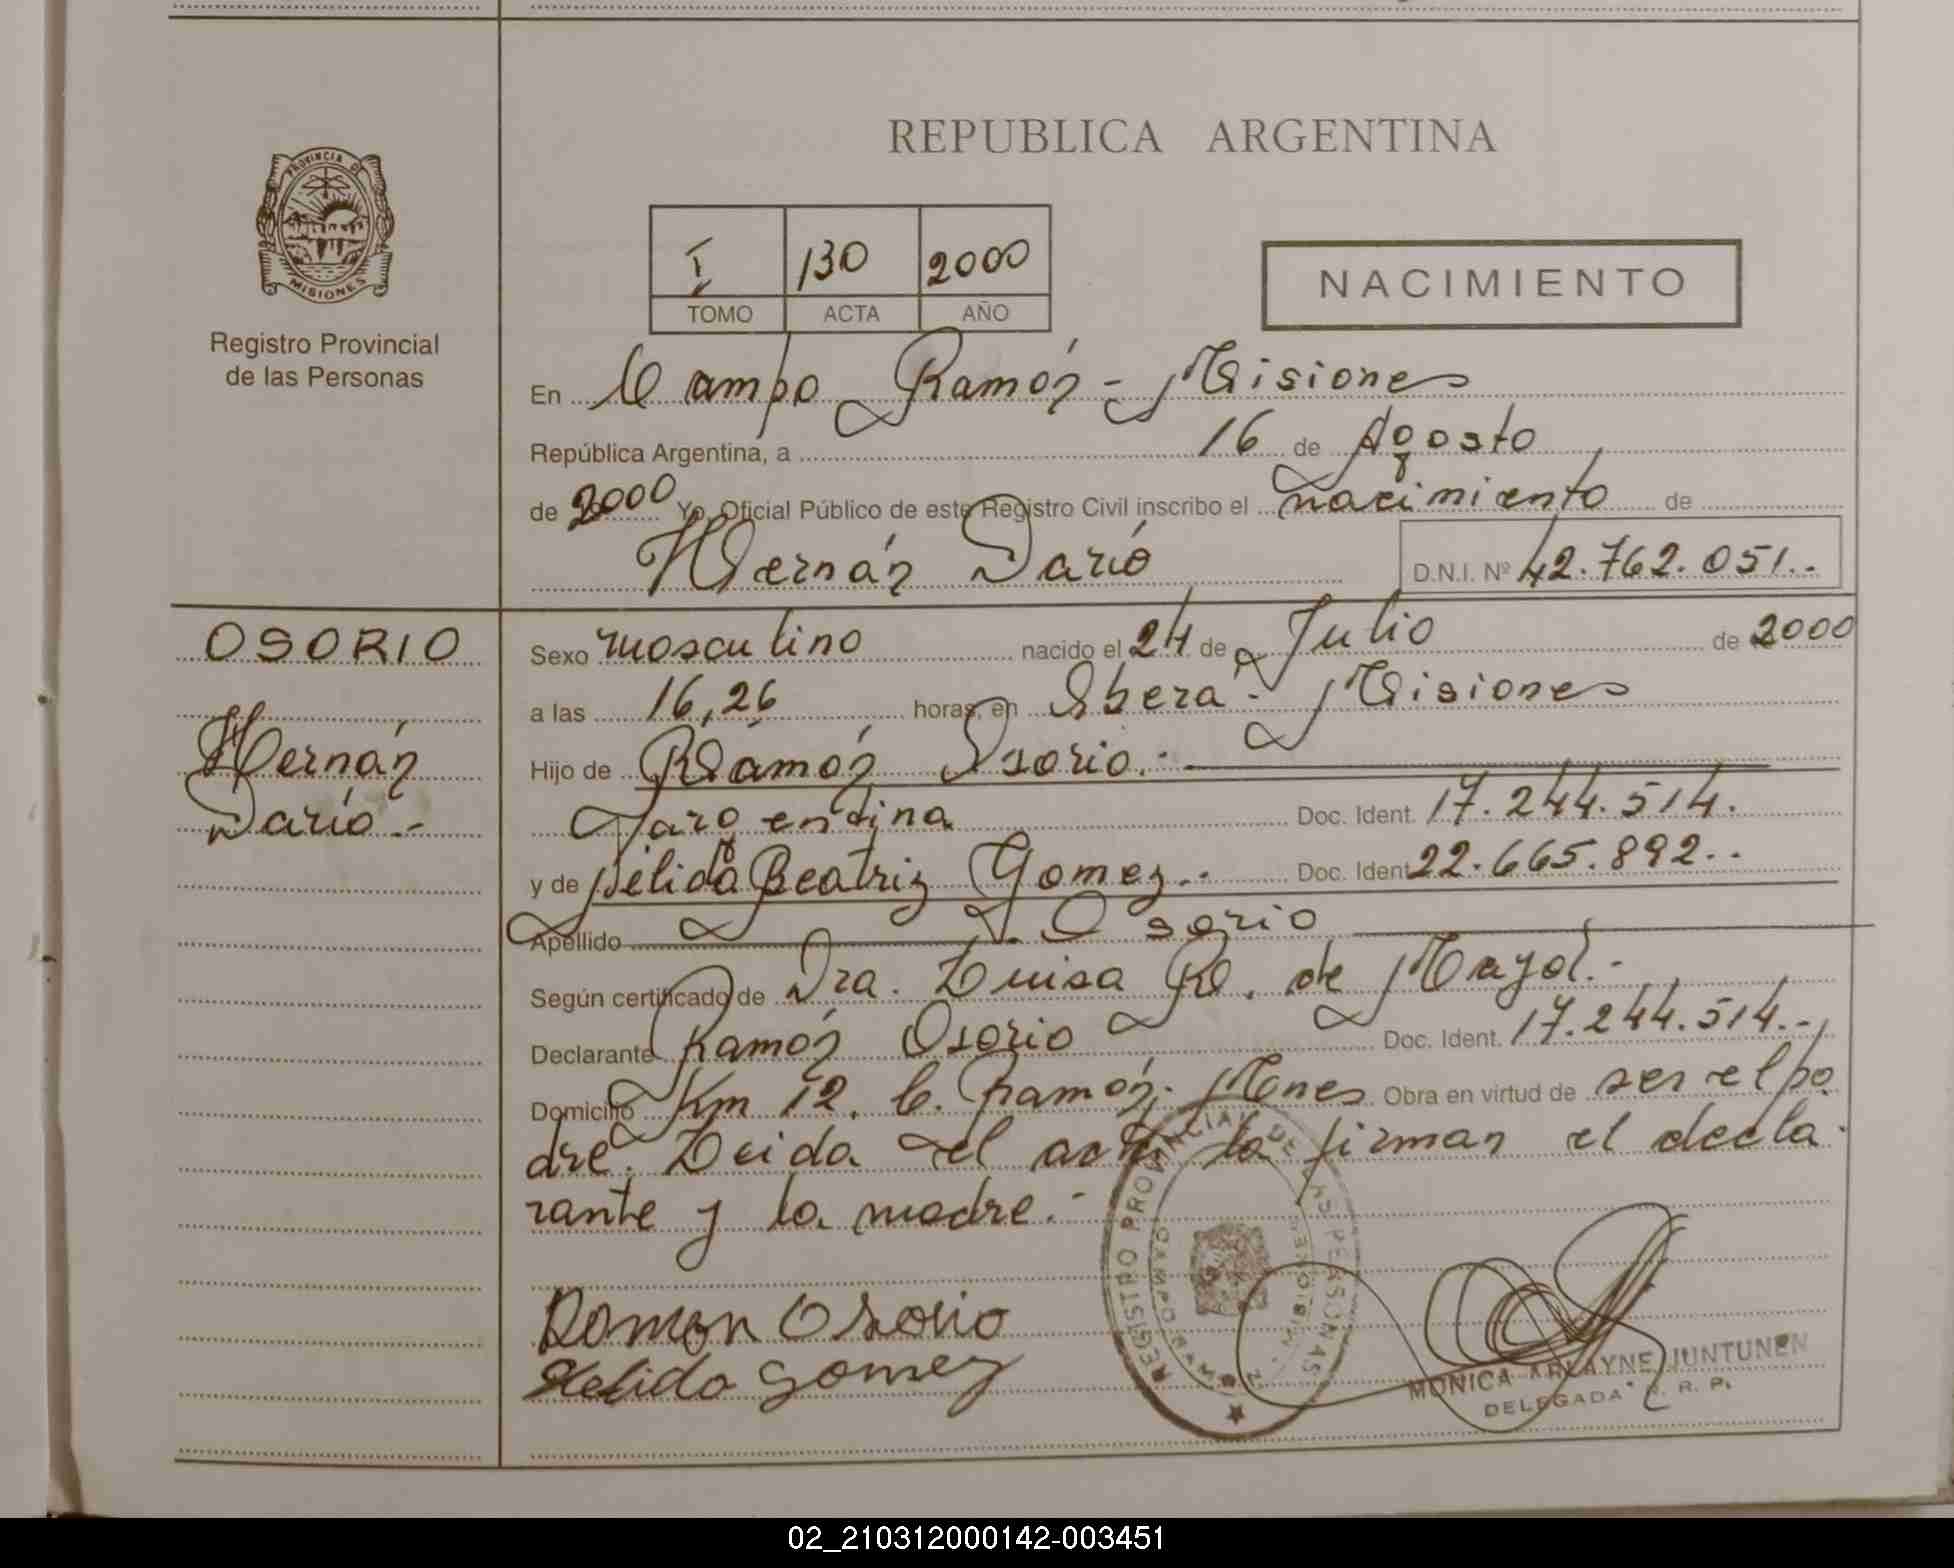 REPUBLICA ARGENTINA
PROVINCIA DE
MISIONES
Registro Provincial
de las Personas
I 130 2000
TOMO ACTA AÑO
NACIMIENTO
En Campo Ramón - Misiones
República Argentina, a 16 de Agosto
de 2000 Yo, Oficial Público de este Registro Civil inscribo el nacimiento de
Hernán Darío D.N.I. Nº 42.762.051.-
OSORIO
Hernán
Darío.-
Sexo masculino nacido el 24 de Julio de 2000
a las 16,26 horas, en Obera - Misiones
Hijo de Ramón Osorio.-
Argentina Doc. Ident. 17.244.514.
y de Nélida Beatriz Gomez.- Doc. Ident 22.665.892.-
Apellido Osorio
Según certificado de Dra. Luisa R. de Mayol.-
Declarante Ramón Osorio Doc. Ident. 17.244.514.-
Domicilio Km 12. C. Ramón; Mnes Obra en virtud de ser el pa
dre. Leida el acta la firman el decla-
rante y la madre.-
REGISTRO PROVINCIAL DE LAS PERSONAS
CAMPO RAMON
MISIONES
Ramon Osorio
Nelida Gomez
MONICA ARLAYNE JUNTUNEN
DELEGADA R. R. P.
02_210312000142-003451